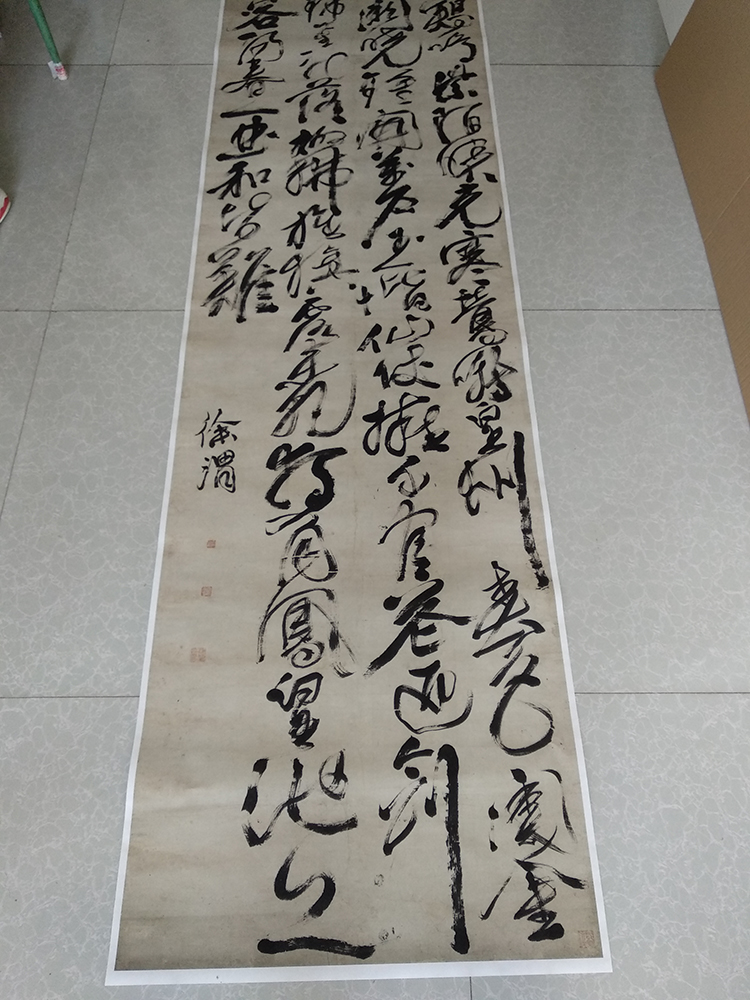 鷄鳴紫陌曙光寒鶯囀皇州春色闌金
闕曉鐘開萬户玉階仙仗擁千官花迎劍
珮星初落柳拂旌旗露未乾獨有鳳皇池上
客陽春一曲和皆難
徐渭